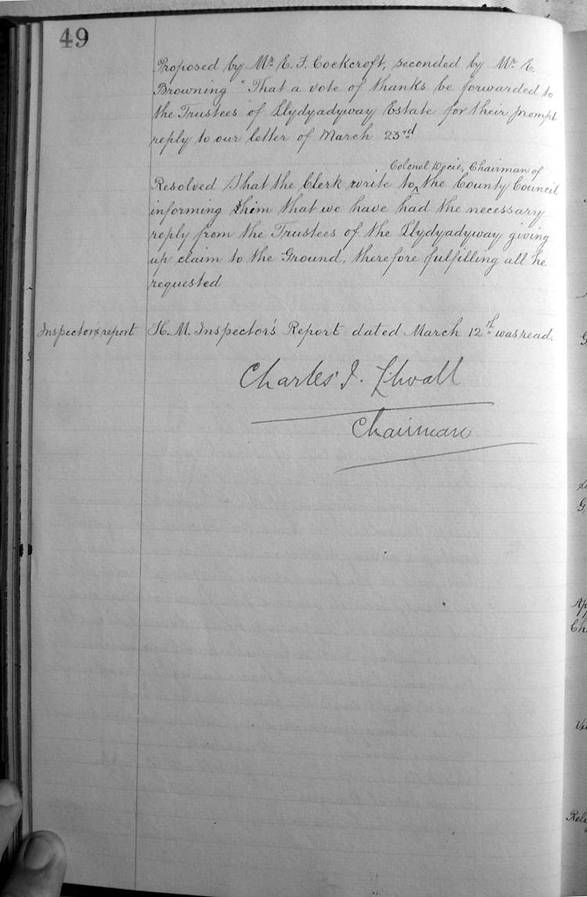 49
Proposed by Mr. E. F. Cockcroft, seconded by Mr. E.
Browning "That a vote of thanks be forwarded to
the Trustees of Llydyadyway Estate for their prompt
reply to our letter of March 23rd
Colonel Chairman of
Resolved that the Clerk write to ^ the County Council
informing them that we have had the necessary
reply from the Trustees of the Llydyadyway giving
up claim to the Ground, therefore fulfilling all he
requested
Inspectors report H. M. Inspector's Report dated March 12th was read.
Charles
Chairman